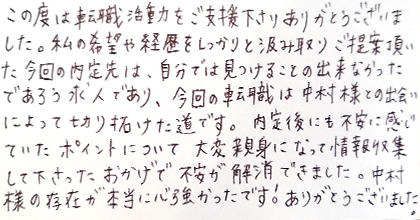 この度は転職活動をご支援下さりありがとうございま
した。私の希望や経歴をしっかりと汲み取りご提案頂い
た今回の内定先は、自分では見つけることの出来なかった
であろう求人であり、今回の転職は中村様との出会い
によって切り拓けた道です。内定後にも不安に感じ
ていたポイントについて大変親身になって情報収集
して下さったおかげで不安が解消できました。中村
様の存在が本当に心強かったです!ありがとうございました。